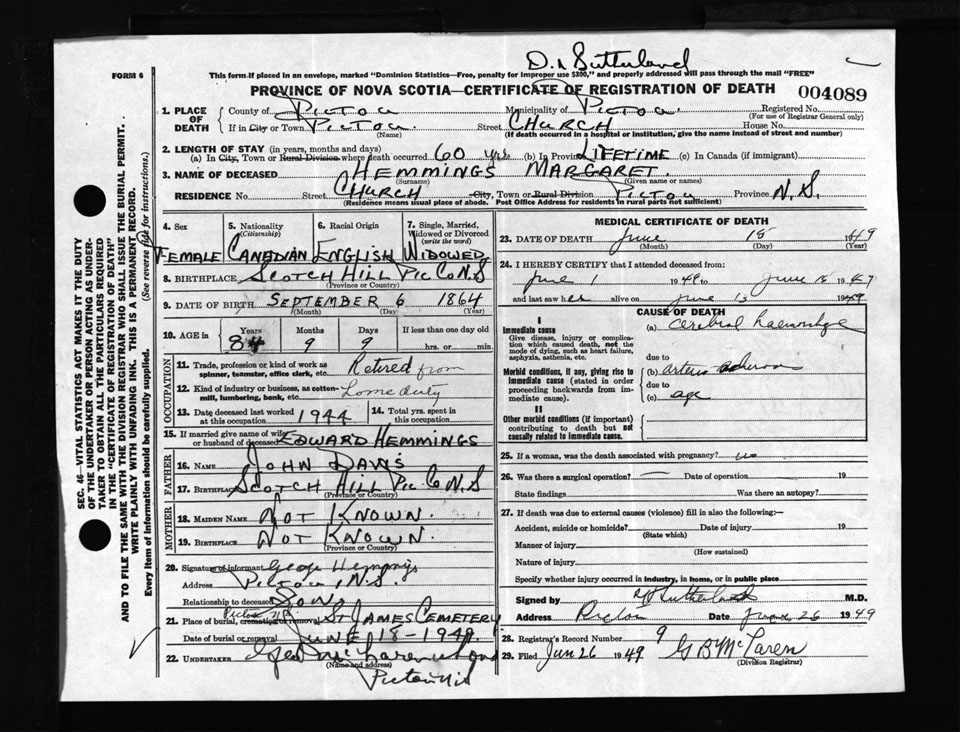 Dr Sutherland
FORM 6
This form if placed in an envelope, marked "Dominion Statistics—Free, penalty for improper use $300," and properly addressed will pass through the mail "FREE"
PROVINCE OF NOVA SCOTIA—CERTIFICATE OF REGISTRATION OF DEATH 004089
1. PLACE OF DEATH County of Pictou Municipality of Pictou. Registered No.
(For use of Registrar General only)
If in City or Town Pictou (Name) Street CHURCH House No.
(If death occurred in a hospital or institution, give the name instead of street and number)
2. LENGTH OF STAY (in years, months and days)
(a) In City, Town or Rural Division where death occurred 60 yrs (b) In Province LIFETIME (c) In Canada (if immigrant)
3. NAME OF DECEASED HEMMINGS MARGARET.
(Surname) (Given name or names)
RESIDENCE No. Street CHURCH City, Town or Rural Division PICTOU Province N.S.
(Residence means usual place of abode. Post Office Address for residents in rural parts not sufficient)
4. Sex FEMALE
5. Nationality (Citizenship) CANADIAN
6. Racial Origin ENGLISH
7. Single, Married, Widowed or Divorced (write the word) WIDOWED
8. BIRTHPLACE SCOTCH HILL PIC CO N.S
(Province or Country)
9. DATE OF BIRTH SEPTEMBER 6 1864
(Month) (Day) (Year)
10. AGE in Years 84 Months 9 Days 9 If less than one day old
hrs. or min.
OCCUPATION
11. Trade, profession or kind of work as spinner, teamster, office clerk, etc. Retired from
12. Kind of industry or business, as cotton-mill, lumbering, bank, etc. Home duty
13. Date deceased last worked at this occupation 1944 14. Total yrs. spent in this occupation
15. If married give name of wife or husband of deceased EDWARD HEMMINGS
FATHER
16. NAME JOHN DAVIS
17. BIRTHPLACE SCOTCH HILL PIC. CO N.S
(Province or Country)
MOTHER
18. MAIDEN NAME NOT KNOWN.
19. BIRTHPLACE NOT KNOWN.
(Province or Country)
20. Signature of informant George Hemmings
Address Pictou, N.S.
Relationship to deceased Son
21. Place of burial, cremation or removal Pictou ST JAMES CEMETERY
Date of burial or removal JUNE 18 - 1949.
22. UNDERTAKER Geo
(Name and address)
Pictou N.S
MEDICAL CERTIFICATE OF DEATH
23. DATE OF DEATH June 15 1949
(Month) (Day) (Year)
24. I HEREBY CERTIFY that I attended deceased from:
June 1 1949 to June 15 19
and last saw her alive on June 15 1949
CAUSE OF DEATH
I
Immediate cause
Give disease, injury or complication which caused death, not the mode of dying, such as heart failure, asphyxia, asthenia, etc.
(a) cerebral haemorrhage
due to
Morbid conditions, if any, giving rise to immediate cause (stated in order proceeding backwards from immediate cause).
(b)
due to
(c) age
II
Other morbid conditions (if important) contributing to death but not causally related to immediate cause.
25. If a woman, was the death associated with pregnancy? no
26. Was there a surgical operation? — Date of operation 19
State findings Was there an autopsy?
27. If death was due to external causes (violence) fill in also the following:—
Accident, suicide or homicide? Date of injury 19
(State which)
Manner of injury
(How sustained)
Nature of injury
Specify whether injury occurred in industry, in home, or in public place
Signed by Sutherland M.D.
Address Pictou Date June 26 1949
28. Registrar's Record Number 9
29. Filed Jun 26 1949 G B McLaren
(Division Registrar)
SEC. 46—VITAL STATISTICS ACT MAKES IT THE DUTY
OF THE UNDERTAKER OR PERSON ACTING AS UNDER-
TAKER TO OBTAIN ALL THE PARTICULARS REQUIRED
IN THE "CERTIFICATE OF REGISTRATION OF DEATH"
AND TO FILE THE SAME WITH THE DIVISION REGISTRAR WHO SHALL ISSUE THE BURIAL PERMIT.
WRITE PLAINLY WITH UNFADING INK. THIS IS A PERMANENT RECORD.
Every item of information should be carefully supplied. (See reverse side for instructions.)